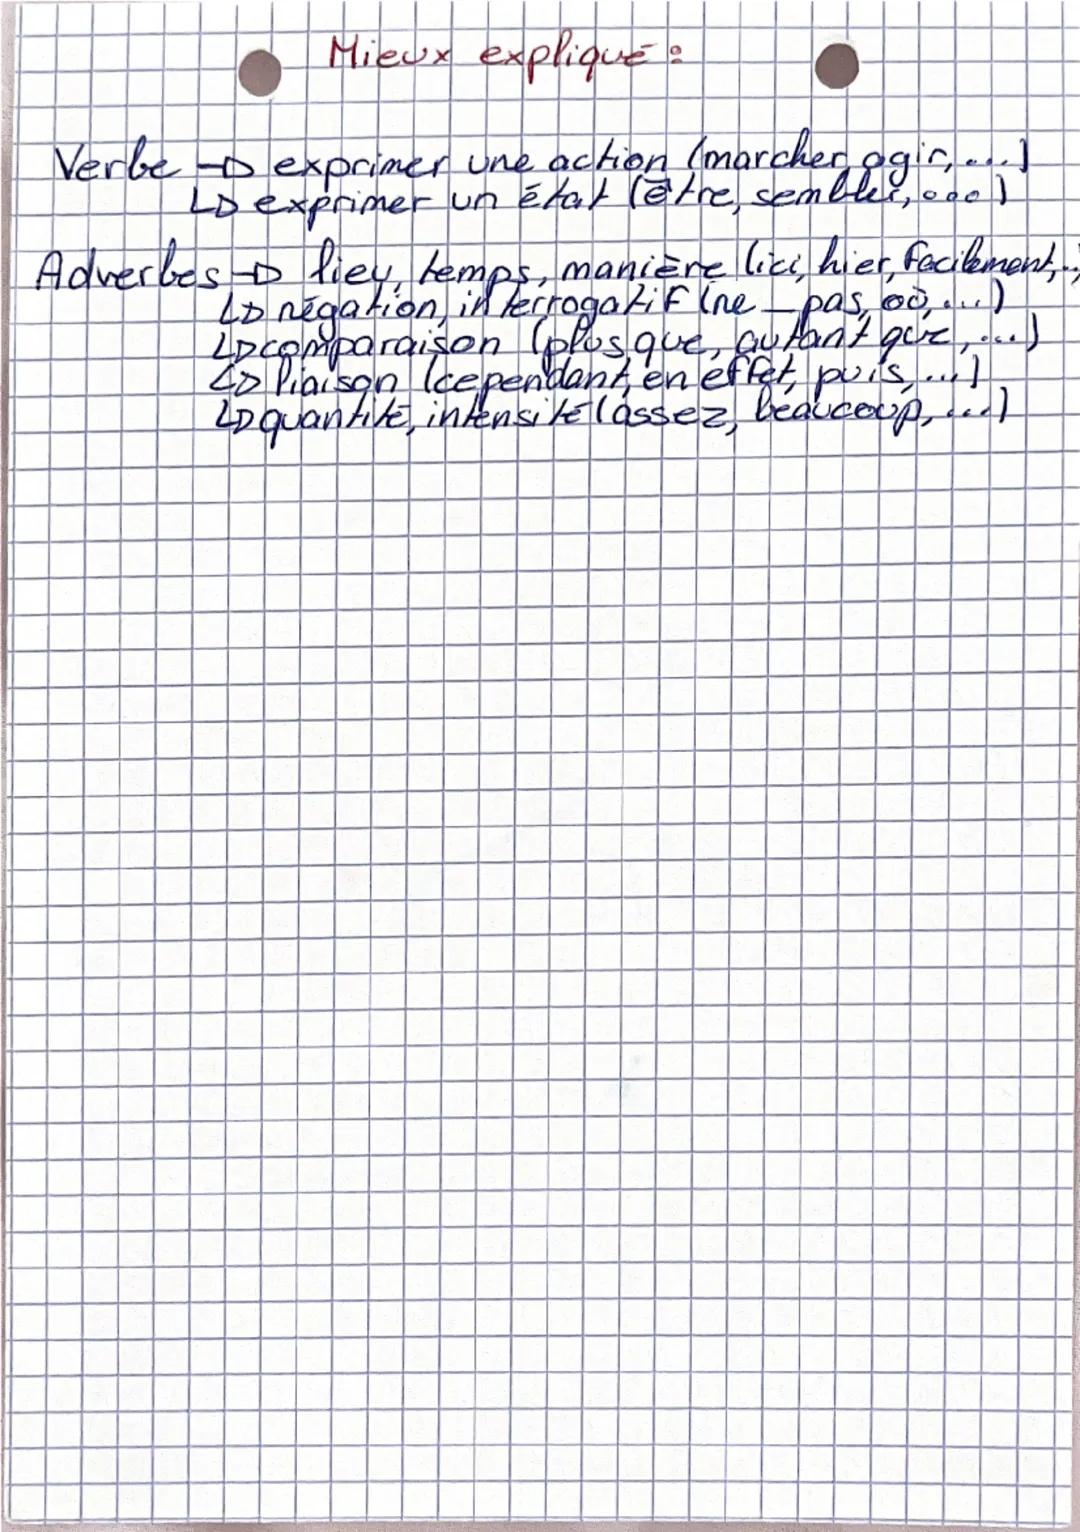 Mieux expliqué :
Verbe → exprimer une action (marcher, agir, ...)
↳ exprimer un état (être, sembler, ...)
Adverbes → lieu, temps, manière (ici, hier, facilement, ..
↳ négation, interrogatif (ne _ pas, où, ...)
↳ comparaison (plus que, autant que, ...)
↳ liaison (cependant, en effet, puis, ...)
↳ quantité, intensité (assez, beaucoup, ...)